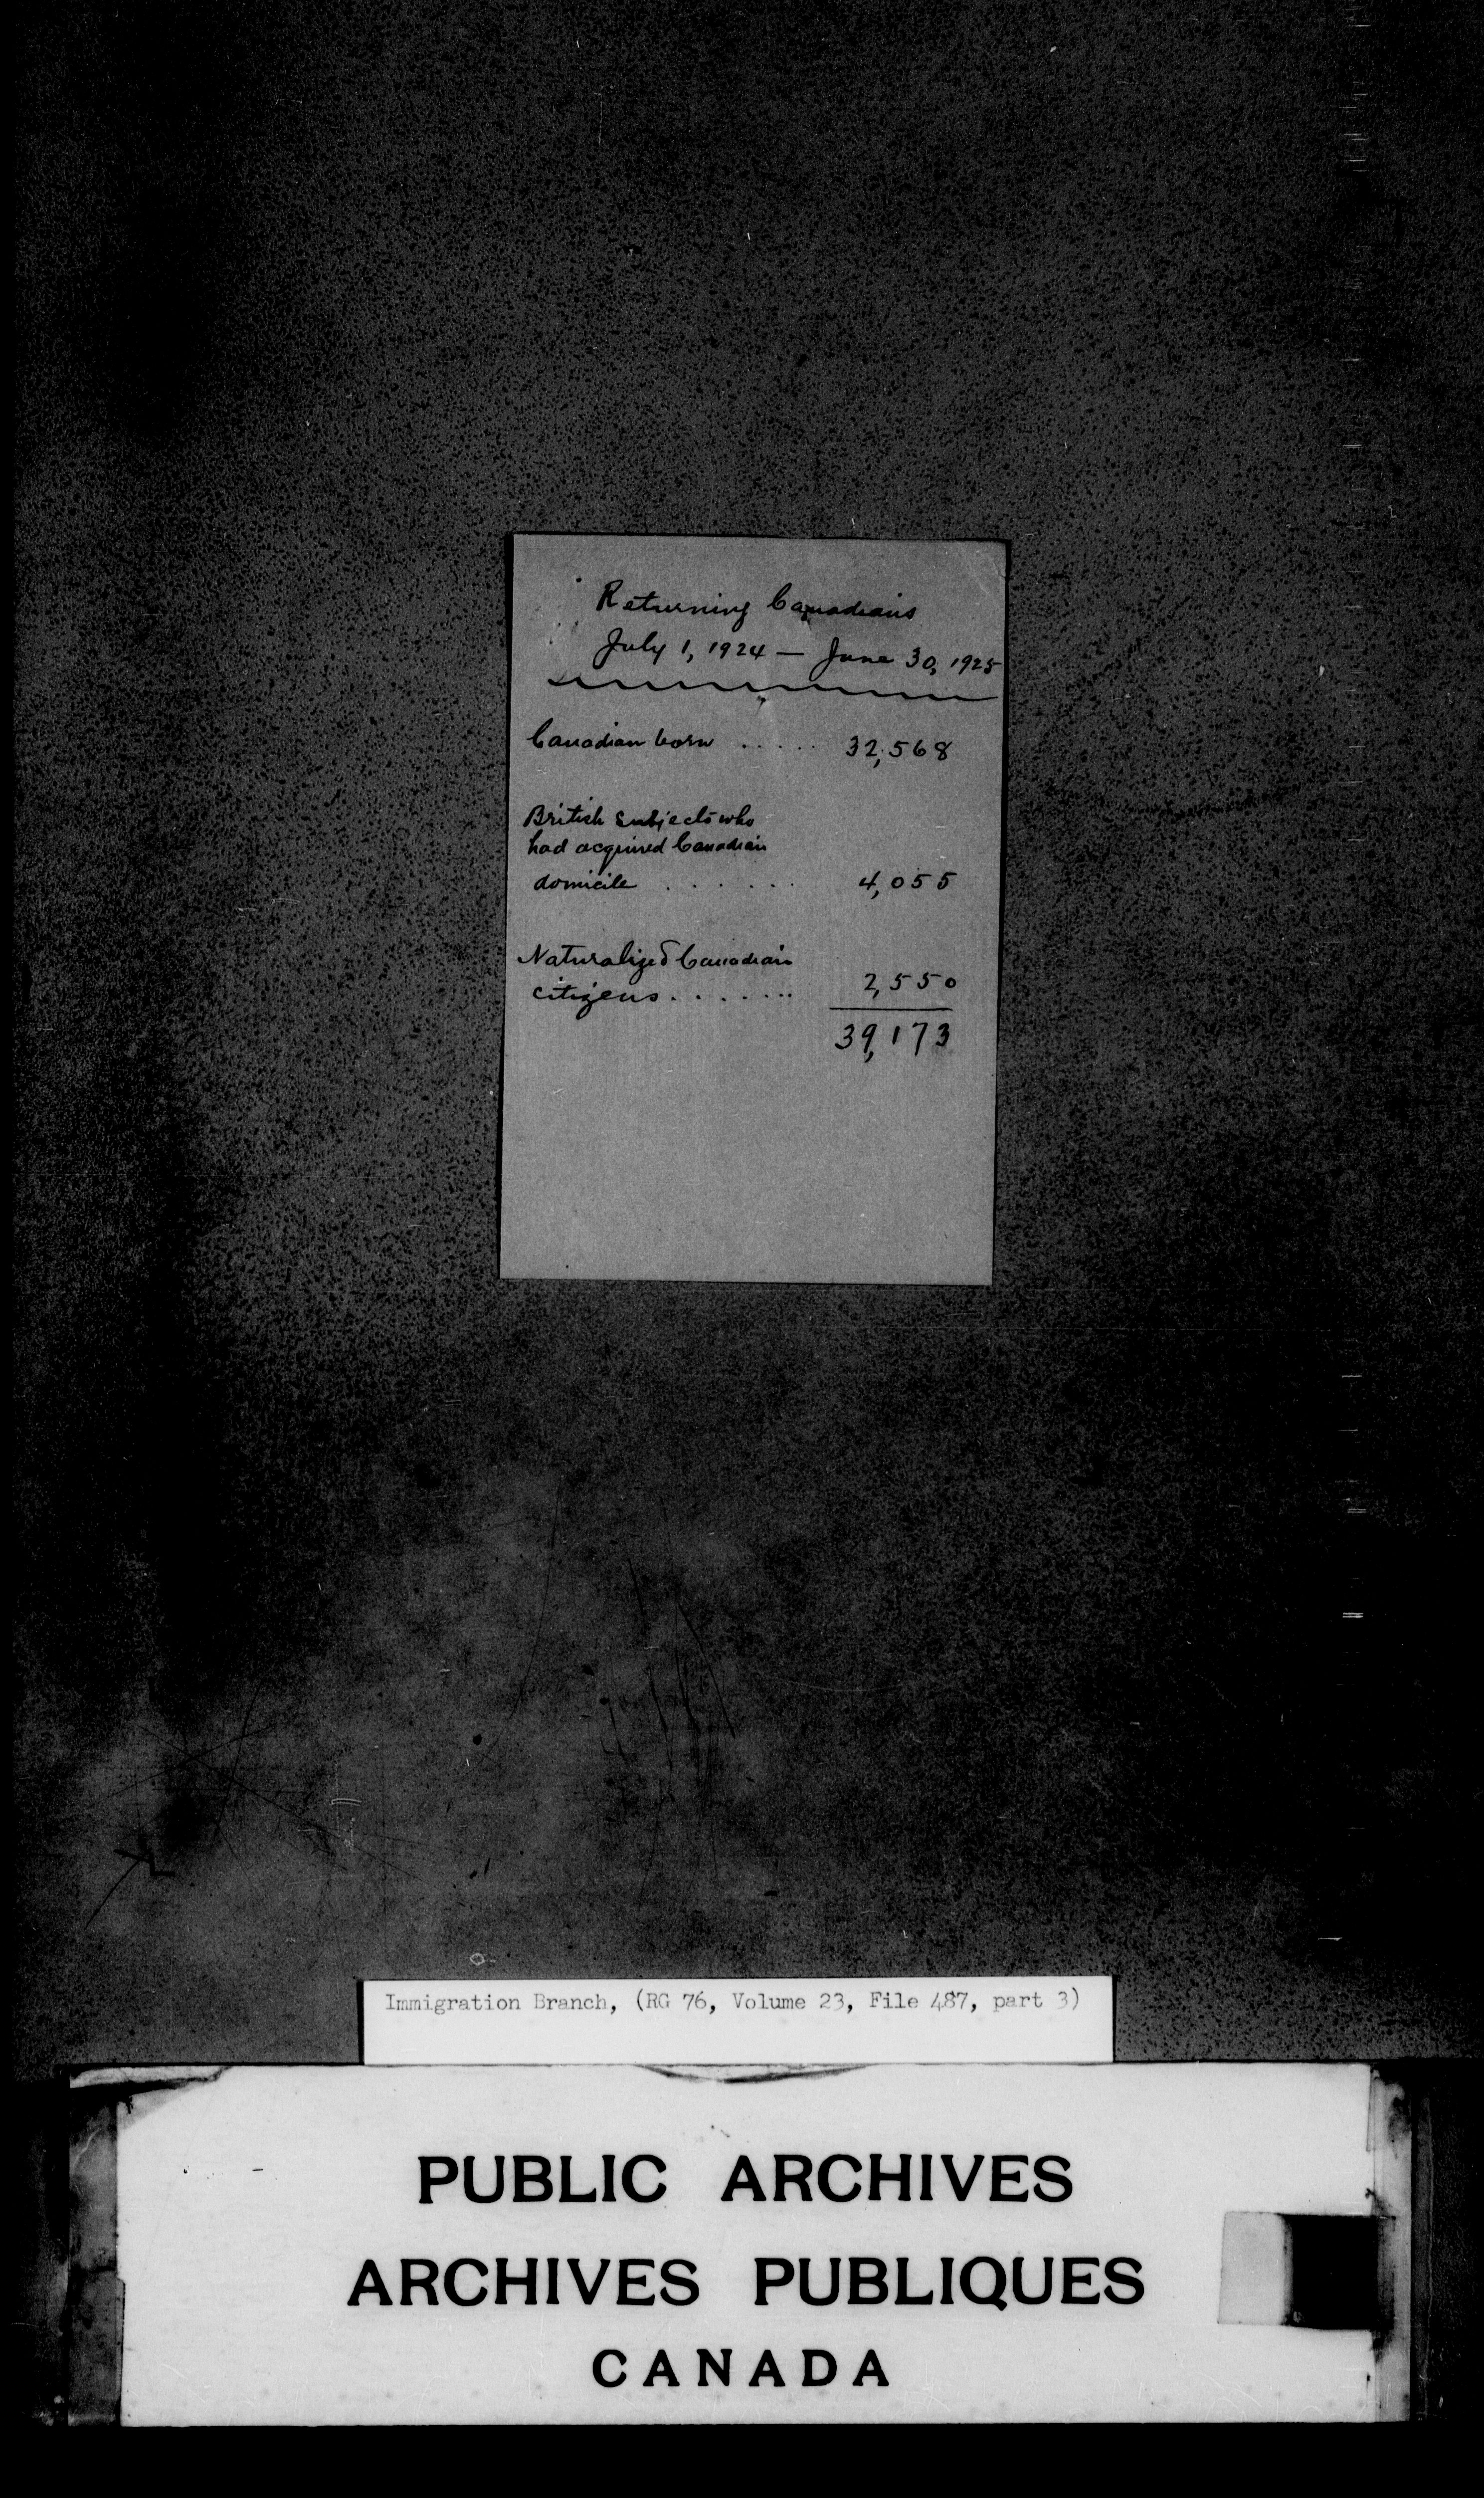 Returning Canadians
July 1, 1924 — June 30, 1925
Canadian born ..... 32,568
British subjects who
had acquired Canadian
domicile ...... 4,055
Naturalized Canadian
citizens....... 2,550
39,173
Immigration Branch, (RG 76, Volume 23, File 487, part 3)
PUBLIC ARCHIVES
ARCHIVES PUBLIQUES
CANADA